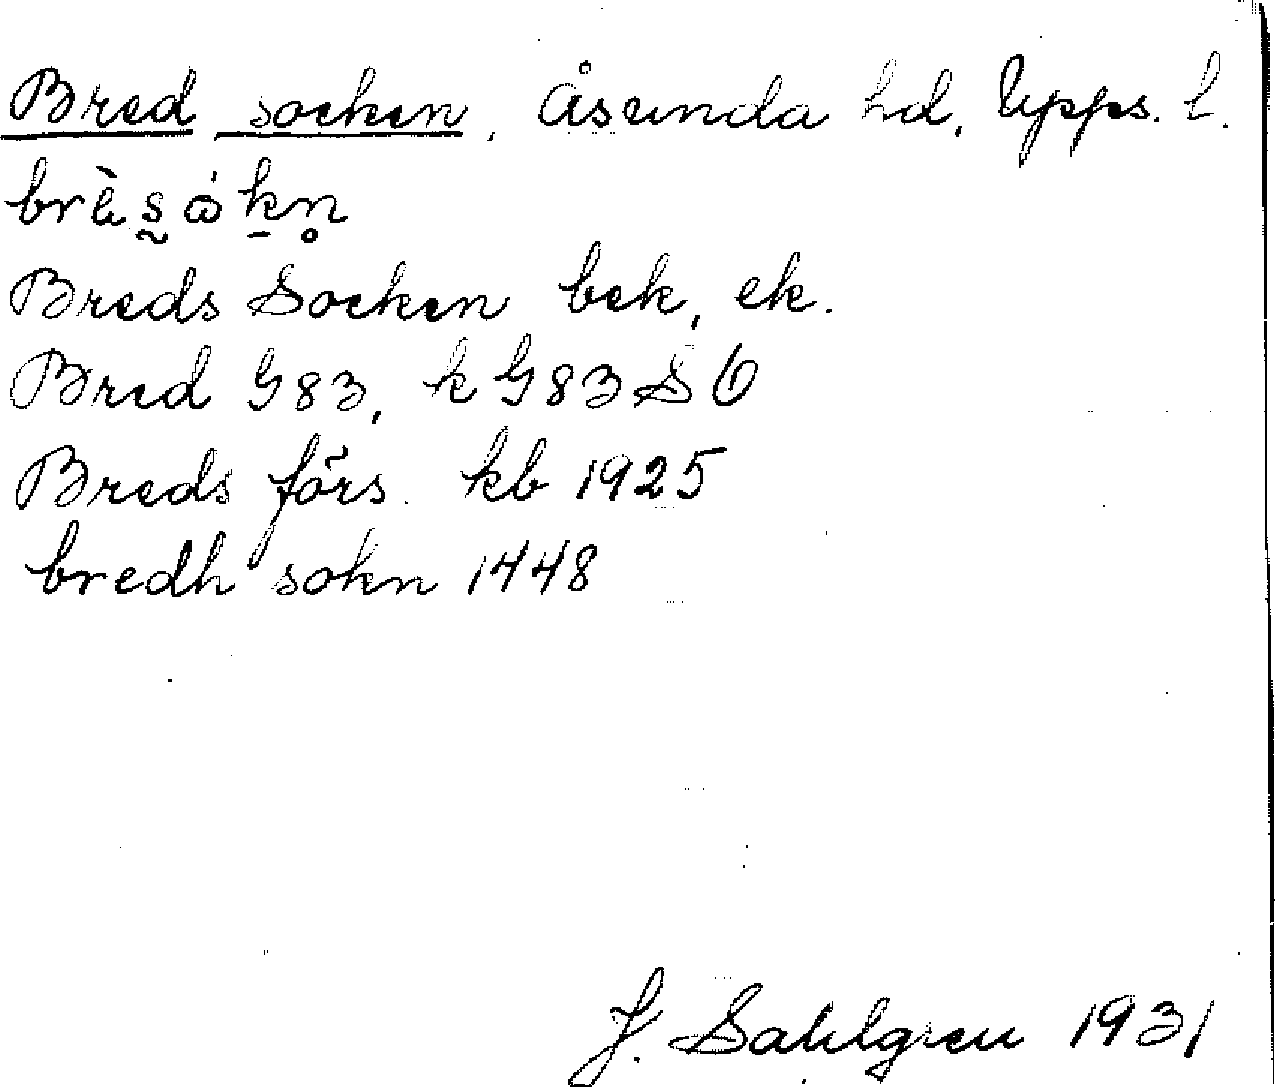 Bred socken, Åsunda hd, Upps. l.
brèsåkn
Breds Socken bek, ek.
Bred G83, k G83 SO
Breds förs. kb 1925
bredh sokn 1448
J. Sahlgren 1931